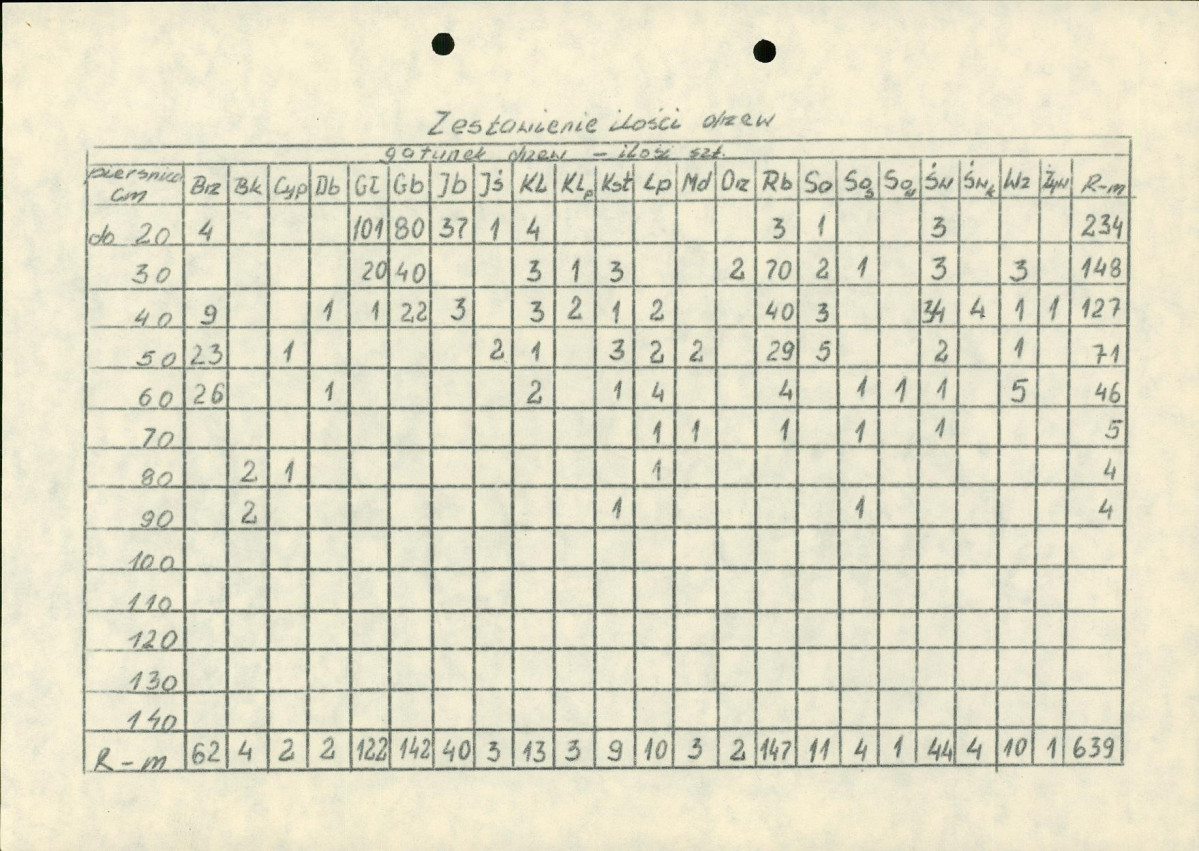 Zestawienie ilości drzew
gatunek drzew – ilość szt.
pierśnica cm Brz Bk Cyp Db Gł Gb Jb Jś Kl Klp Kst Lp Md Orz Rb So Sos Sow Św Św Wz Żyw R-m
do 20 4 101 80 37 1 4 3 1 3 234
30 20 40 3 1 3 2 70 2 1 3 3 148
40 9 1 1 22 3 3 2 1 2 40 3 34 4 1 1 127
50 23 1 2 1 3 2 2 29 5 2 1 71
60 26 1 2 1 4 4 1 1 1 5 46
70 1 1 1 1 1 5
80 2 1 1 4
90 2 1 1 4
100
110
120
130
140
R-m 62 4 2 2 122 142 40 3 13 3 9 10 3 2 147 11 4 1 44 4 10 1 639